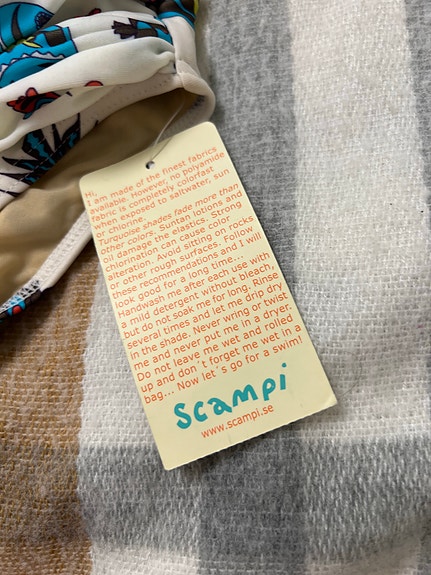 Hi,
I am made of the finest fabrics
available. However, no polyamide
fabric is completely colorfast
when exposed to saltwater, sun
or chlorine.
Turquoise shades fade more than
other colors. Suntan lotions and
oil damage the elastics. Strong
chlorination can cause color
alteration. Avoid sitting on rocks
or other rough surfaces. Follow
these recommendations and I will
look good for a long time...
Handwash me after each use with
a mild detergent without bleach,
but do not soak me for long. Rinse
several times and let me drip dry
in the shade. Never wring or twist
me and never put me in a dryer.
Do not leave me wet and rolled
up and don´t forget me wet in a
bag... Now let´s go for a swim!
scampi
www.scampi.se